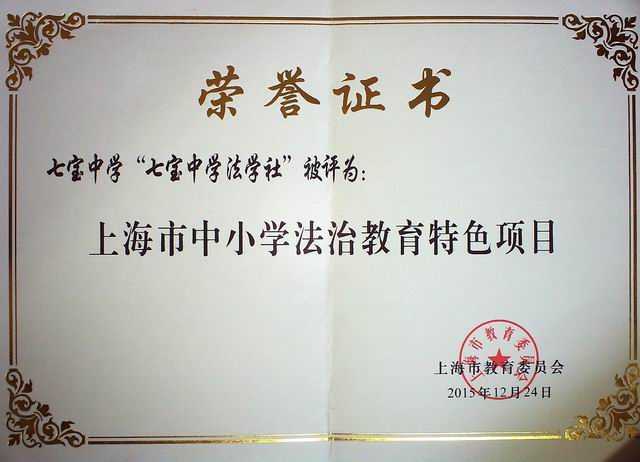 荣誉证书
七宝中学“七宝中学法学社”被评为:
上海市中小学法治教育特色项目
上海市教育委员会
上海市教育委员会
2015年12月24日